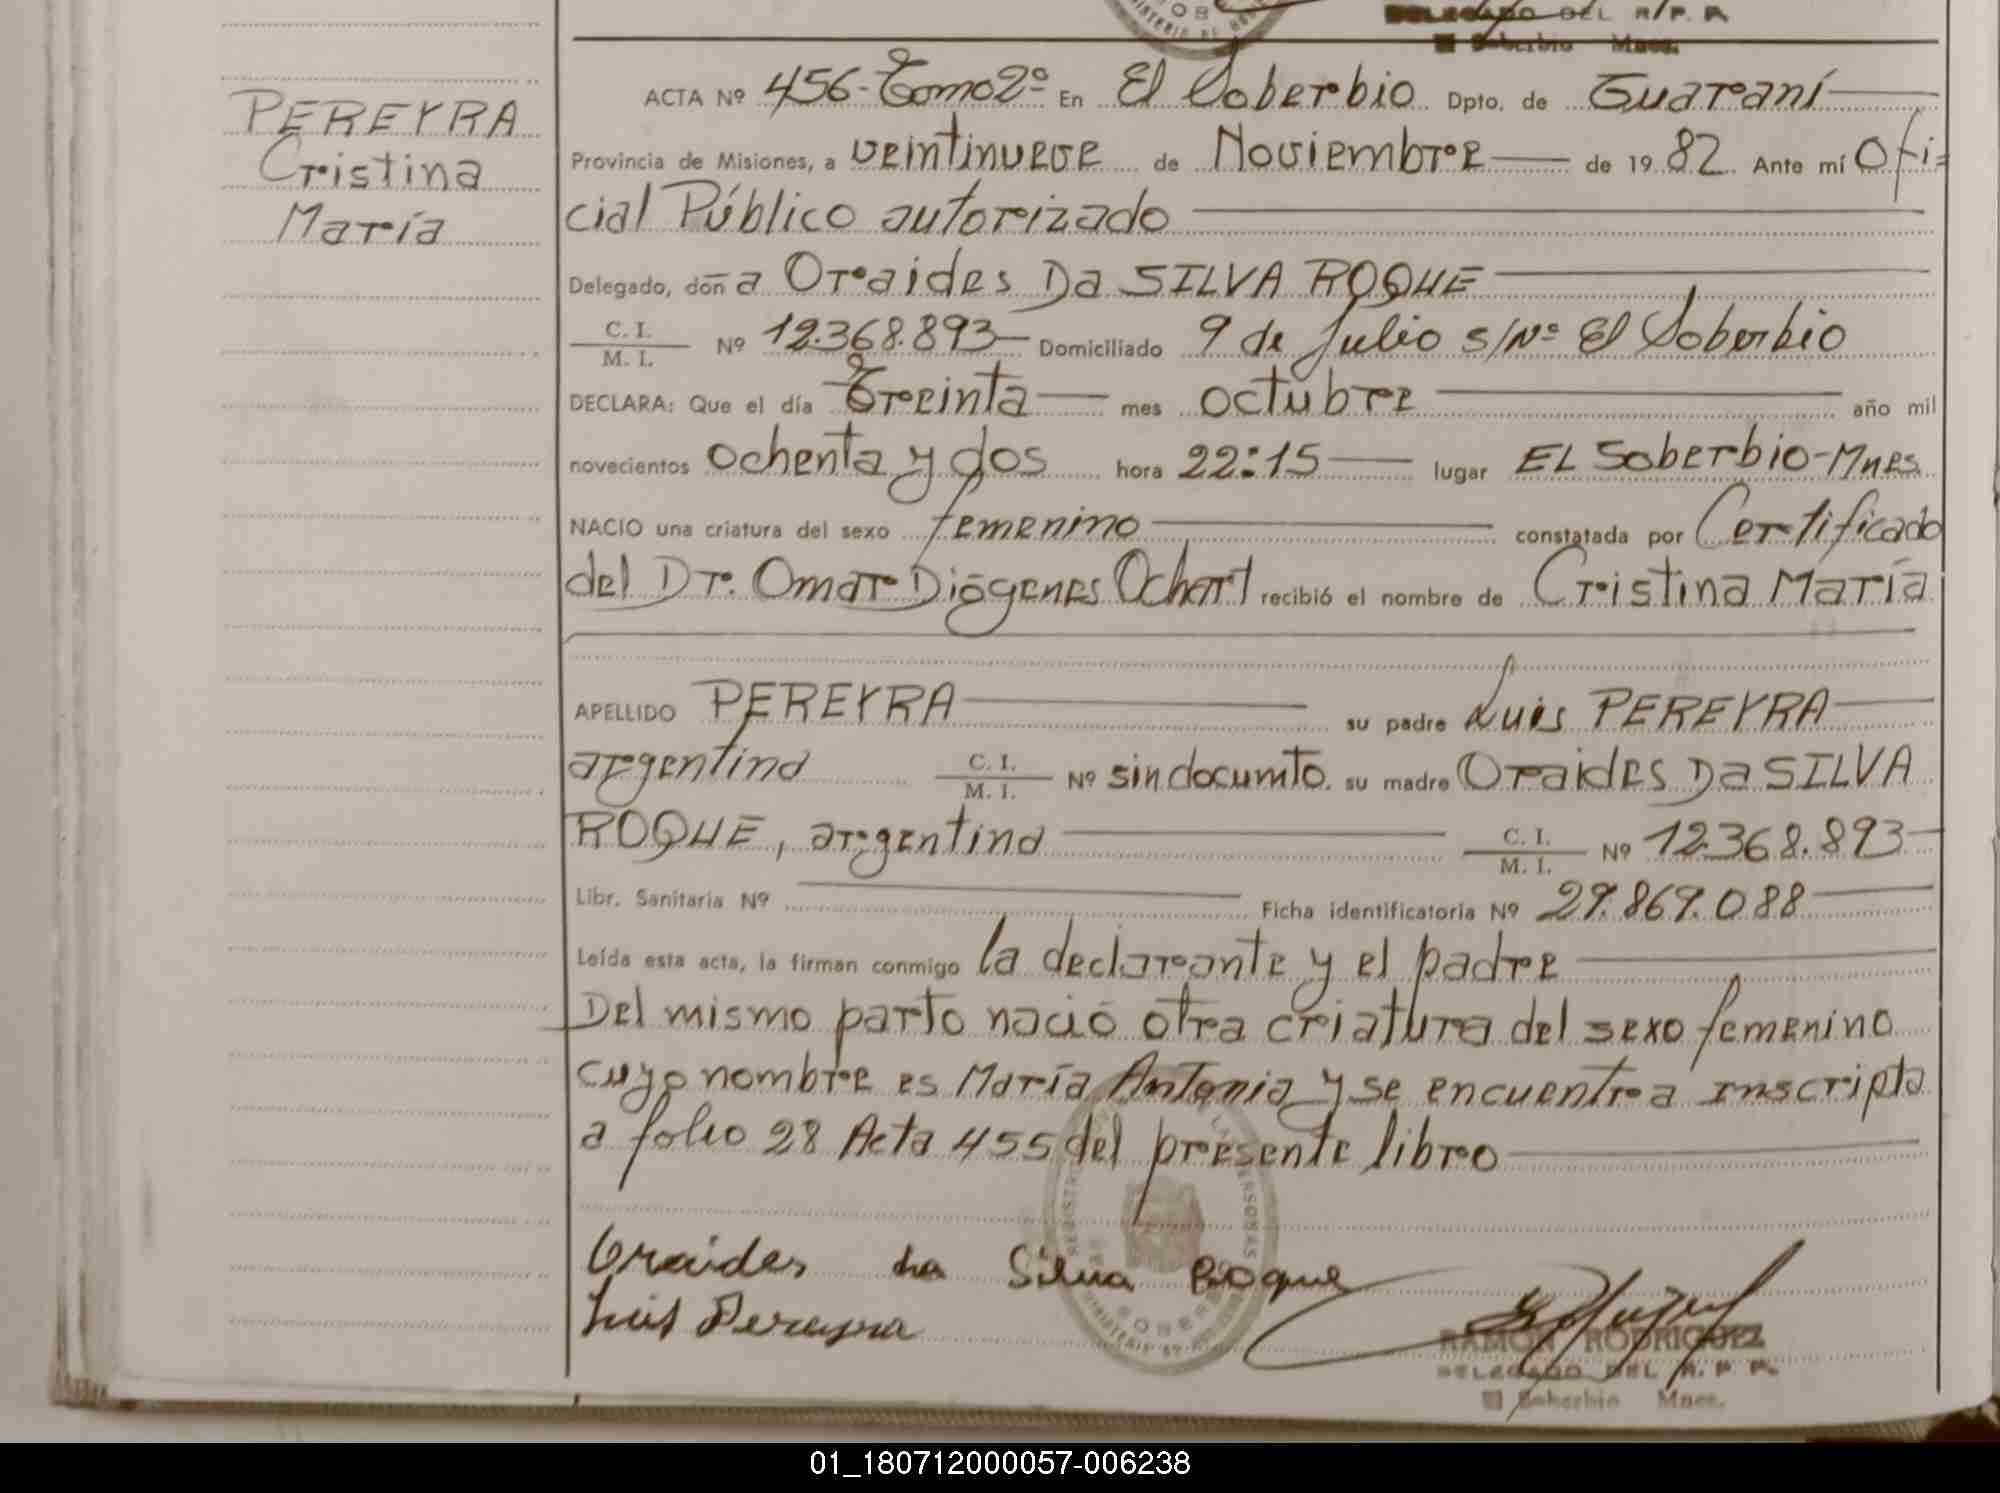 DELEGADO DEL R.P.P.
El Soberbio Mnes.
PEREYRA
Cristina
María
ACTA Nº 456-Tomo 2º En El Soberbio Dpto. de Guaraní
Provincia de Misiones, a veintinueve de Noviembre de 19 82 Ante mí Ofi=
cial Público autorizado
Delegado, doña Oraides Da SILVA ROQUE
C. I.
M. I. Nº 12.368.893 Domiciliado 9 de Julio s/Nº El Soberbio
DECLARA: Que el día Treinta mes octubre año mil
novecientos ochenta y dos hora 22:15 lugar EL Soberbio-Mnes
NACIO una criatura del sexo femenino constatada por Certificado
del Dr. Omar Diógenes recibió el nombre de Cristina María
APELLIDO PEREYRA su padre Luis PEREYRA
argentino C. I.
M. I. Nº sin documto. su madre Oraides Da SILVA
ROQUE, argentina C. I.
M. I. Nº 12.368.893
Libr. Sanitaria Nº Ficha identificatoria Nº 29.869.088
Leída esta acta, la firman conmigo la declarante y el padre
Del mismo parto nació otra criatura del sexo femenino
cuyo nombre es María Antonia y se encuentra inscripta
a folio 28 Acta 455 del presente libro
Oraides da Silva Roque
Luis Pereyra
RAMON RODRIGUEZ
DELEGADO DEL R. P. P.
El Soberbio Mnes.
01_180712000057-006238